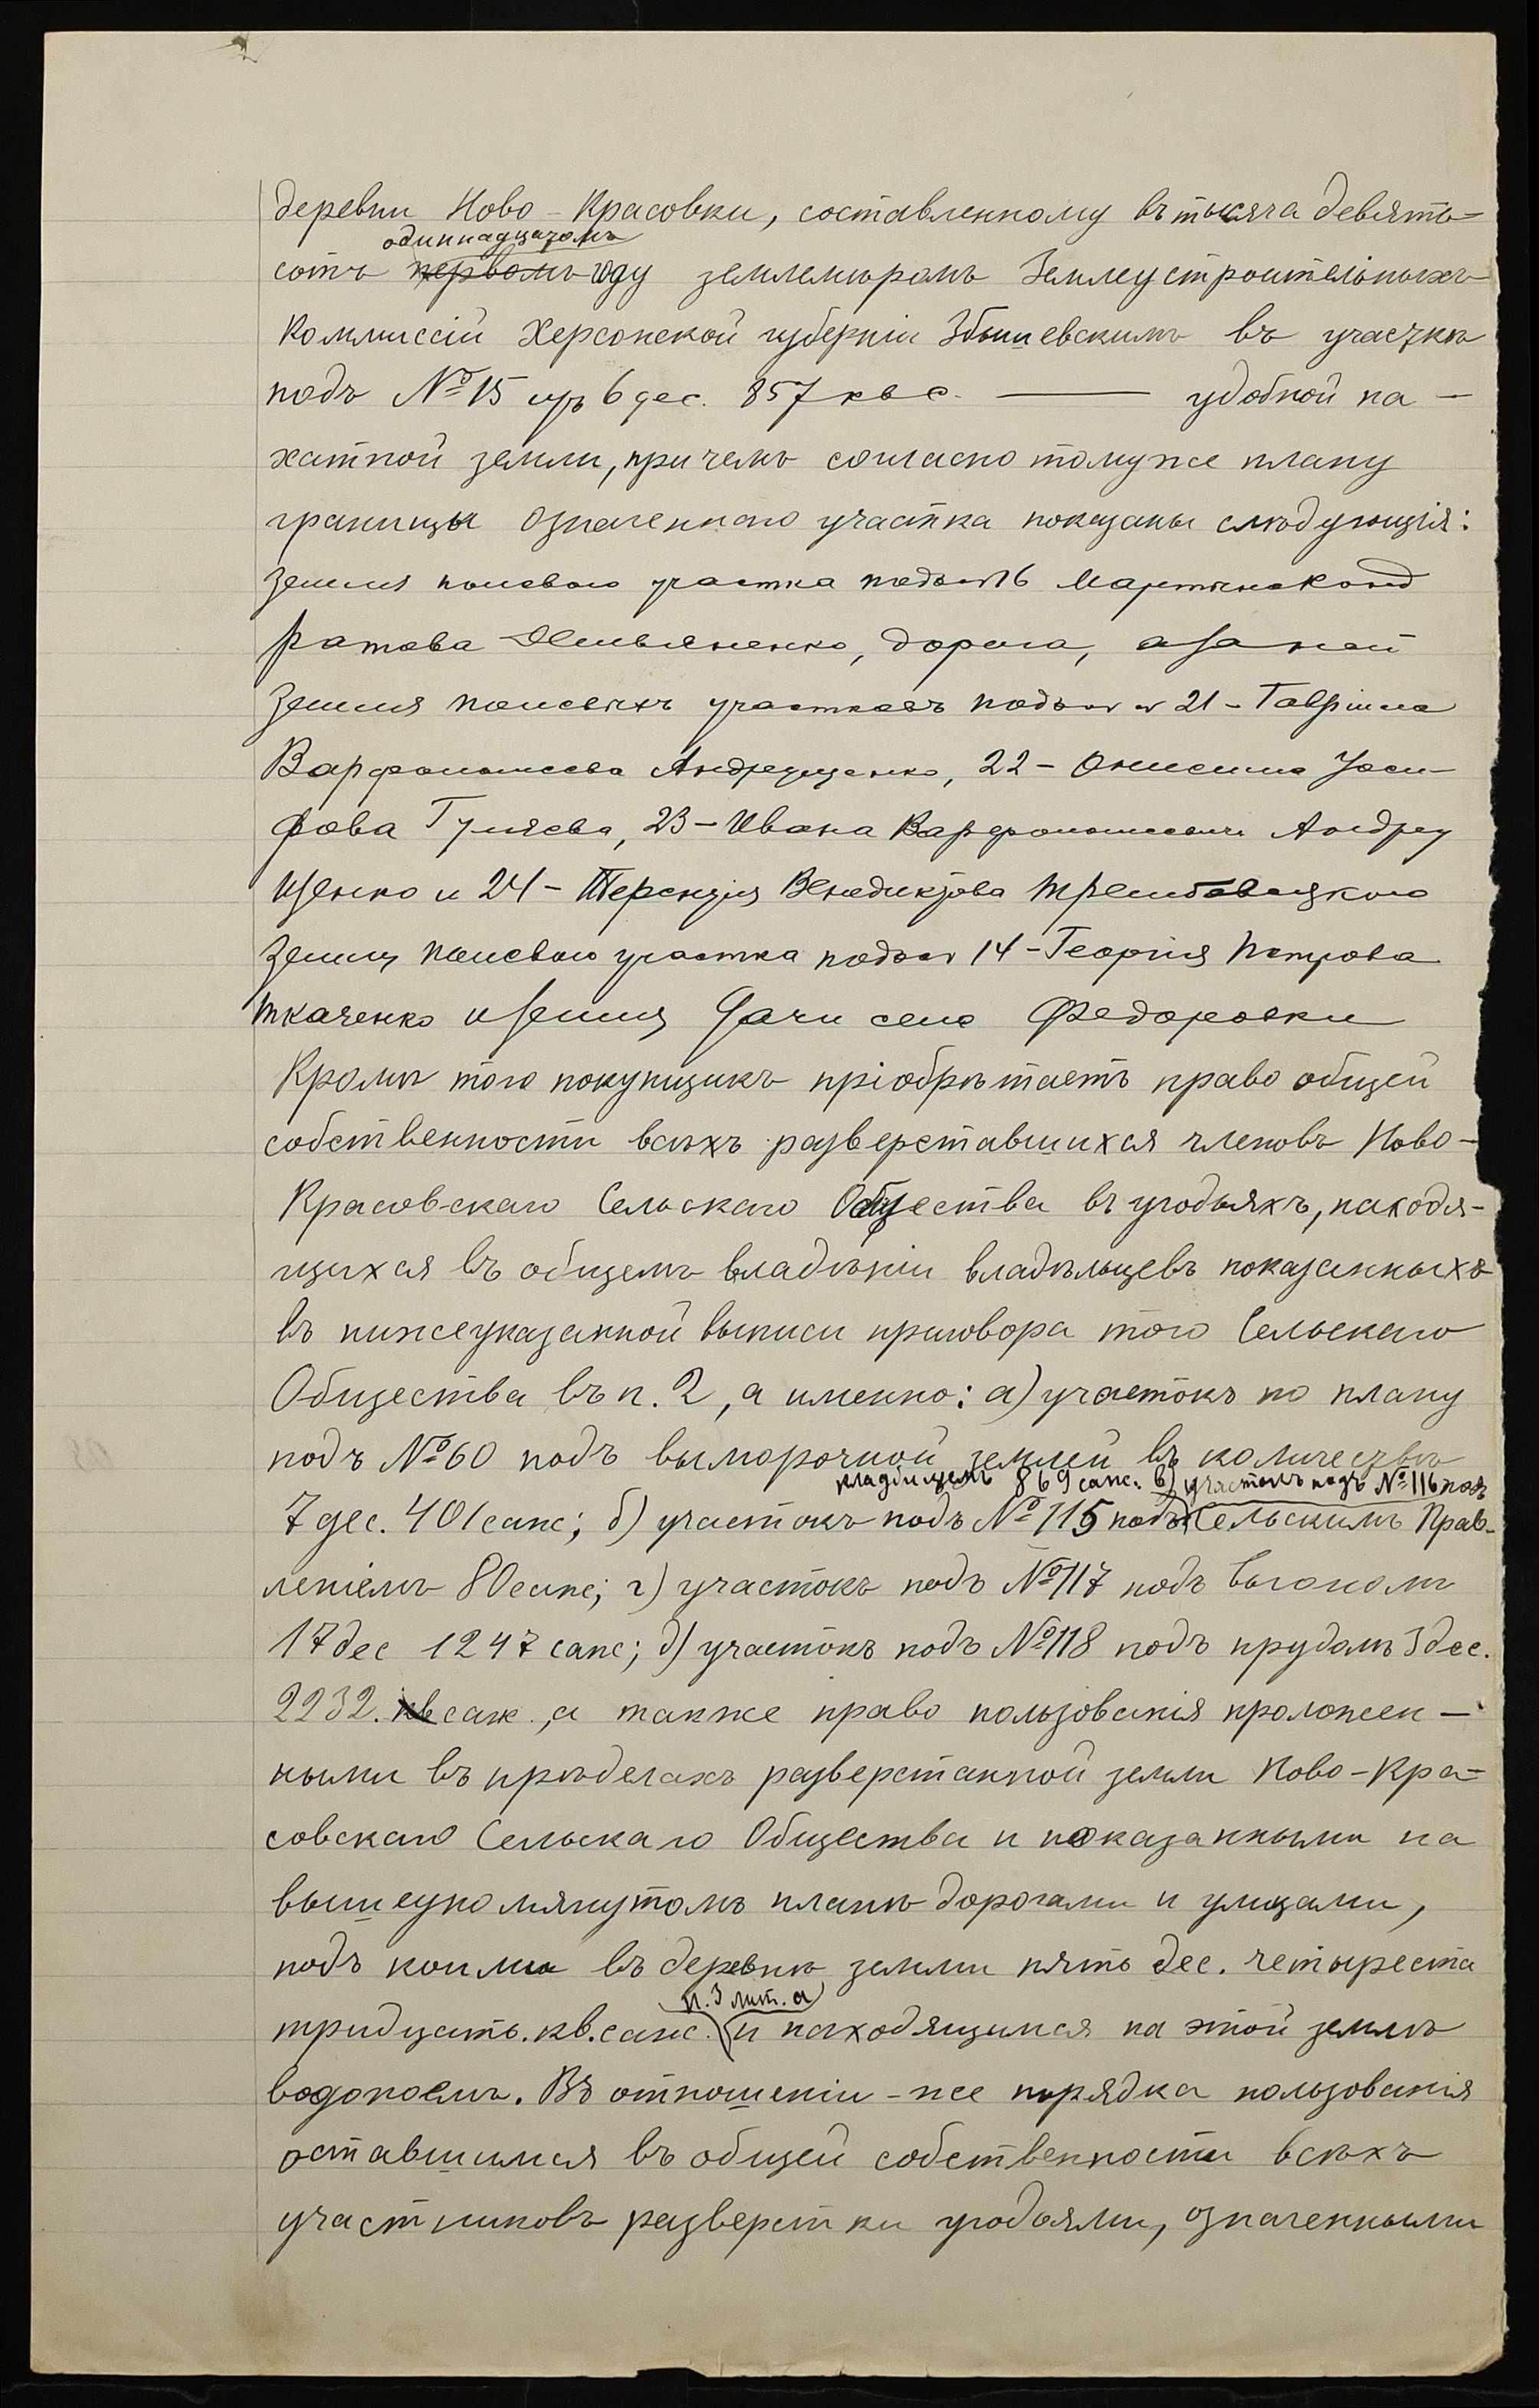 деревни Ново-Красовки, составленному въ тысяча девять-
одиннадцатомъ
сотъ первомъ году землемѣромъ Землеустроительныхъ
Коммиссій Херсонской губерніи Збышевскимъ въ участкѣ
подъ № 15 мѣръ 6 дес. 857 кв с. — удобной па-
хатной земли, при чемъ согласно тому же плану
границы означеннаго участка показаны слѣдующія:
Земля полеваго участка подъ № 16 Мартына Конд
ратова Емельяненко, дорога, а за ней
Земля полевыхъ участковъ подъ №№ 21 - Гавріила
Варфоломеева Андрющенко, 22 - Онисима Іоси-
фова Гуляева, 23 - Ивана Варфоломеевича Андру
щенко и 24 - Терентія Венедиктова Трембовецкаго
Земля полеваго участка подъ № 14 - Георгія Петрова
Ткаченко и земля дачи села Федоровки
Кромѣ того покупщикъ пріобрѣтаетъ право общей
собственности всѣхъ разверставшихся членовъ Ново-
Красовскаго Сельскаго Общества въ угодьяхъ, находя-
щихся въ общемъ владѣніи владѣльцевъ показанныхъ
въ нижеуказанной выписи приговора того Сельскаго
Общества въ п. 2, а именно: а) участокъ по плану
подъ № 60 подъ выморочной землей въ количествѣ
кладбищемъ 869 саж. в) участокъ подъ № 116 подъ
7 дес. 401 саж; б) участокъ подъ № 115 подъ Сельскимъ Прав-
леніемъ 80 саж; г) участокъ подъ № 117 подъ выгономъ
17 дес 1247 саж; д) участокъ подъ № 118 подъ прудомъ 3 дес.
2232. кв саж., а также право пользованія проложен-
ными въ прѣделахъ разверстанной земли Ново-Кра-
совскаго Сельскаго Общества и показанными на
вышеупомянутомъ планѣ дорогами и улицами,
подъ коими въ деревнѣ земли пять дес. четыреста
п. 3 лит. а
тридцать. кв. саж. и находящимся на этой землѣ
водопоемъ. Въ отношеніи-же порядка пользованія
оставшимися въ общей собственности всѣхъ
участниковъ разверстки угодьями, означенными